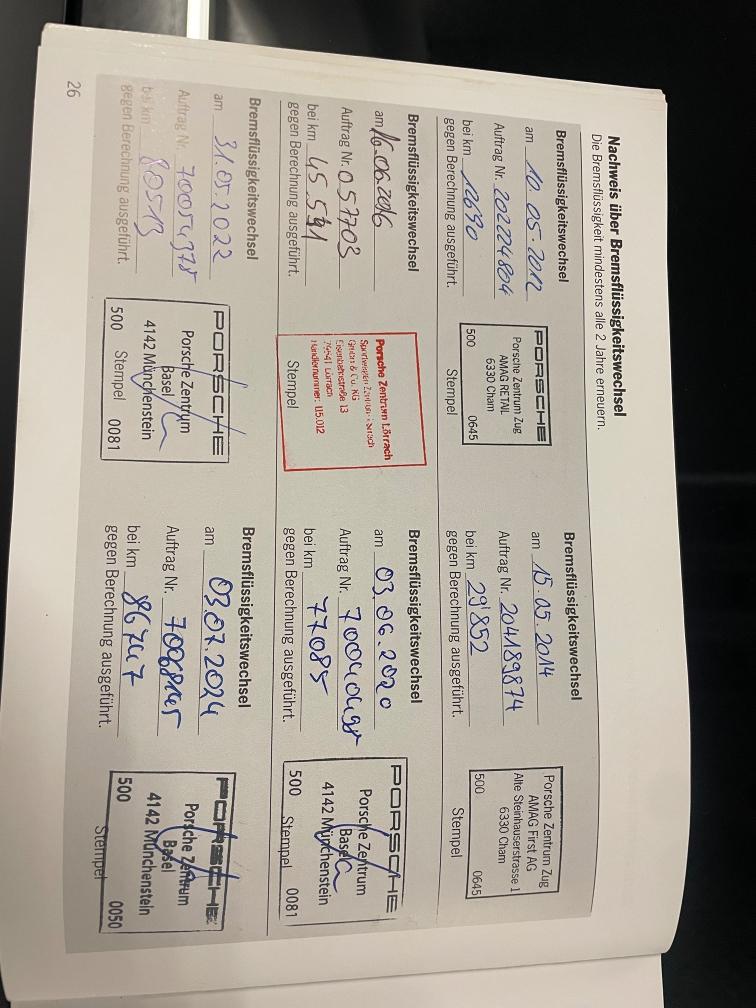 Nachweis über Bremsflüssigkeitswechsel
Die Bremsflüssigkeit mindestens alle 2 Jahre erneuern.
Bremsflüssigkeitswechsel
am 10.05.2012
Auftrag Nr. 202224804
bei km 12690
gegen Berechnung ausgeführt.
PORSCHE
Porsche Zentrum Zug
AMAG RETAIL
6330 Cham
500 0645
Stempel
Bremsflüssigkeitswechsel
am 15.05.2014
Auftrag Nr. 204189874
bei km 29852
gegen Berechnung ausgeführt.
Porsche Zentrum Zug
AMAG First AG
Alte Steinhauserstrasse 1
6330 Cham
500 0645
Stempel
Bremsflüssigkeitswechsel
am 16.06.2016
Auftrag Nr. 057703
bei km 45.591
gegen Berechnung ausgeführt.
Porsche Zentrum Lörrach
Sportwagen Zentrum Lörrach
GmbH & Co. KG
Eisenbahnstraße 13
79541 Lörrach
Händlernummer: 115.012
Stempel
Bremsflüssigkeitswechsel
am 03.06.2020
Auftrag Nr.
bei km 77085
gegen Berechnung ausgeführt.
PORSCHE
Porsche Zentrum
Basel
4142 Münchenstein
500 0081
Stempel
Bremsflüssigkeitswechsel
am 31.05.2022
Auftrag Nr. 70054378
bei km 80513
gegen Berechnung ausgeführt.
PORSCHE
Porsche Zentrum
Basel
4142 Münchenstein
500 Stempel 0081
Bremsflüssigkeitswechsel
am 03.07.2024
Auftrag Nr.
bei km 86747
gegen Berechnung ausgeführt.
PORSCHE
Porsche Zentrum
Basel
4142 Münchenstein
500 0050
Stempel
26